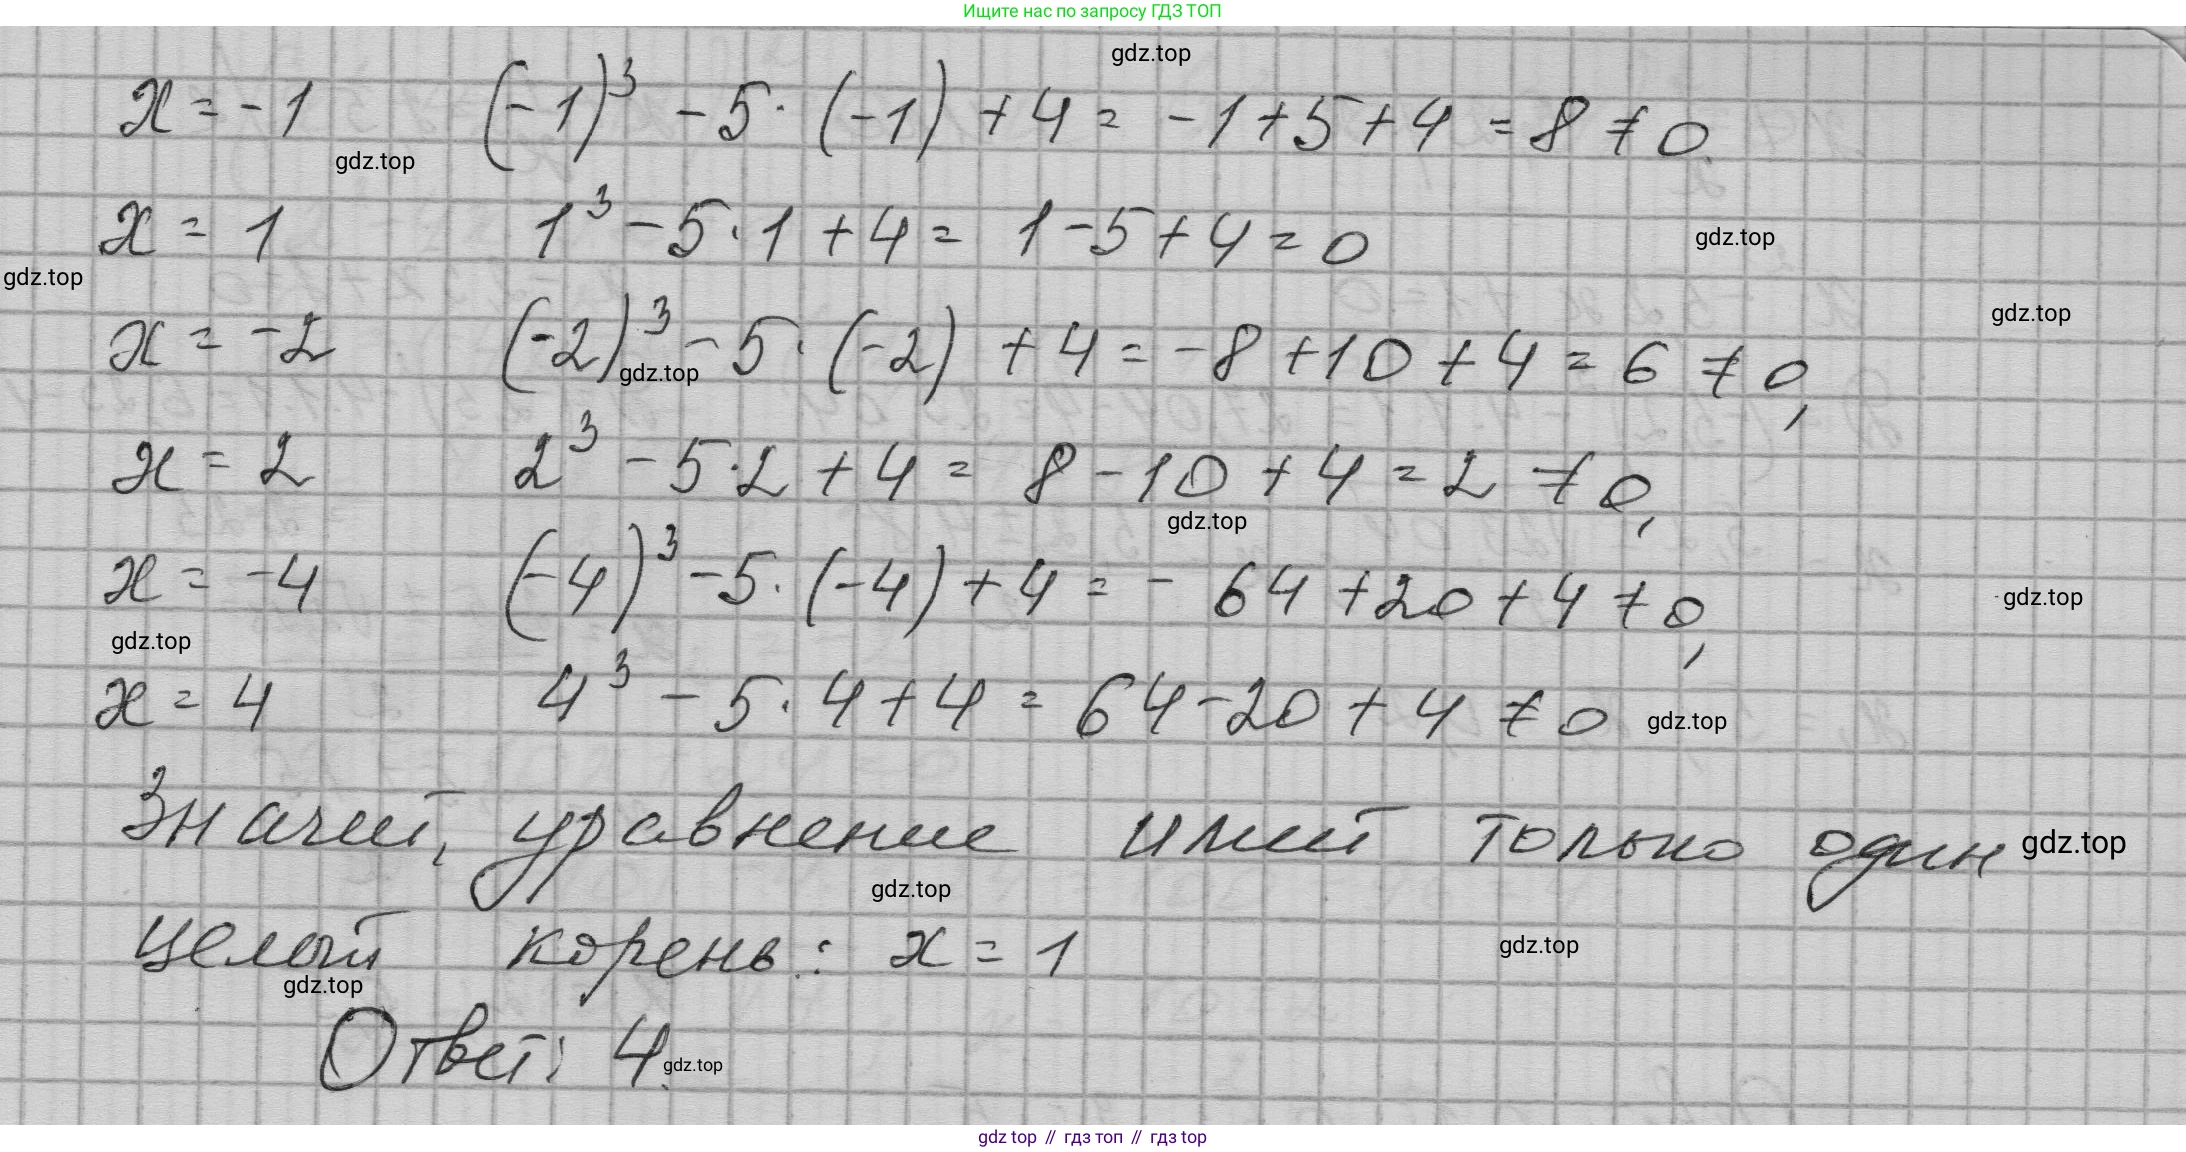 Ищите нас по запросу ГДЗ ТОП
gdz.top
x = -1 (-1)³ - 5·(-1) + 4 = -1+5+4 = 8 ≠ 0.
gdz.top
x = 1 1³ - 5·1 + 4 = 1-5+4 = 0
gdz.top
gdz.top
gdz.top
x = -2 (-2)³ - 5·(-2) + 4 = -8+10+4 = 6 ≠ 0,
gdz.top
x = 2 2³ - 5·2 + 4 = 8-10+4 = 2 ≠ 0,
gdz.top
x = -4 (-4)³ - 5·(-4) + 4 = -64+20+4 ≠ 0,
gdz.top
gdz.top
x = 4 4³ - 5·4+4 = 64-20+4 ≠ 0
gdz.top
Значит, уравнение имеет только один
gdz.top
gdz.top
целый корень: x = 1
gdz.top
gdz.top
Ответ: 4.
gdz.top
gdz top // гдз топ // гдз top